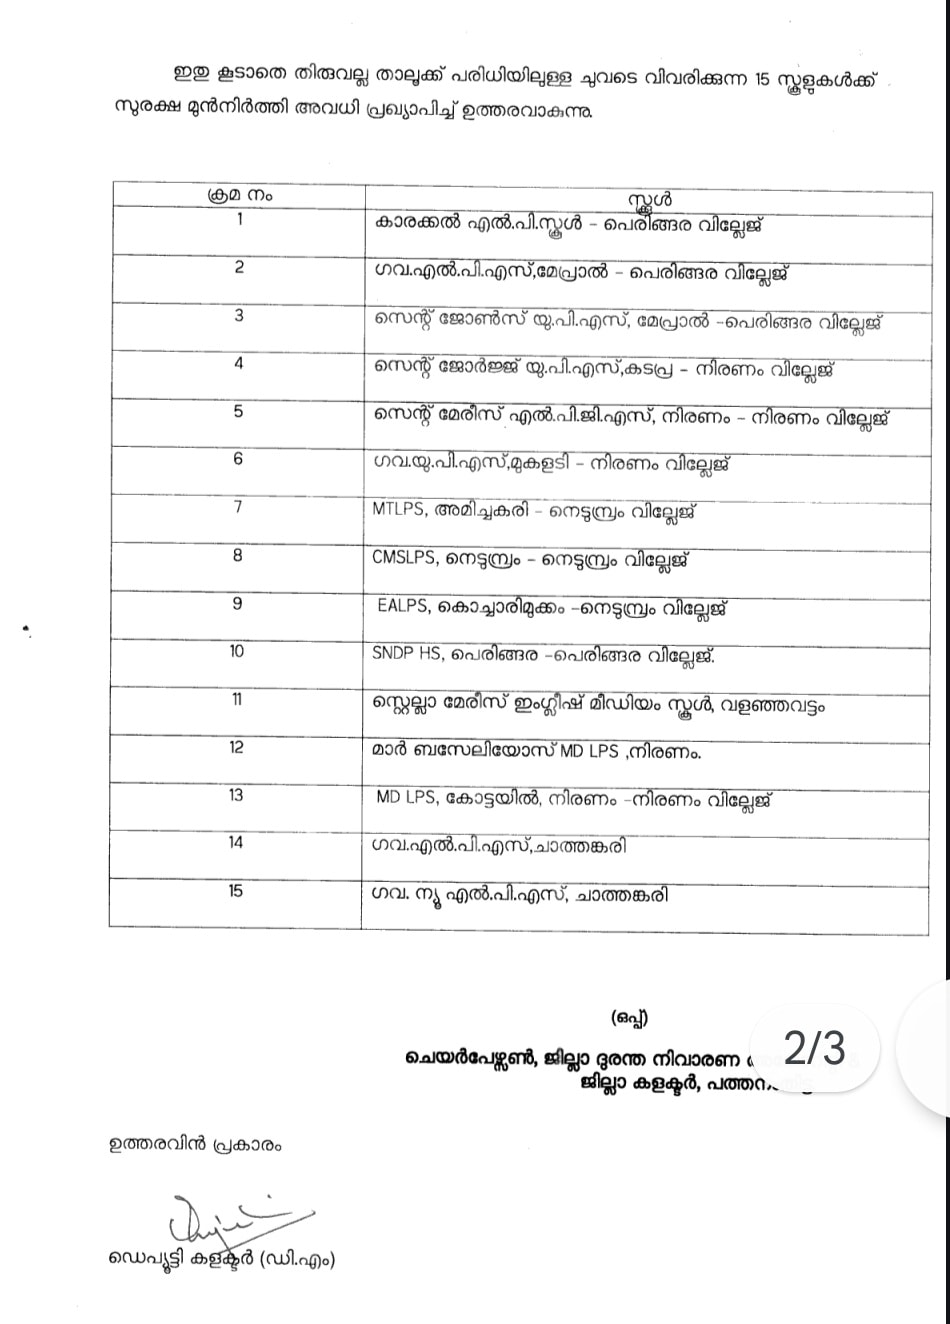 ഇതു കൂടാതെ തിരുവല്ല താലൂക്ക് പരിധിയിലുള്ള ചുവടെ വിവരിക്കുന്ന 15 സ്കൂളുകൾക്ക്
സുരക്ഷ മുൻനിർത്തി അവധി പ്രഖ്യാപിച്ച് ഉത്തരവാകുന്നു.
ക്രമ നം സ്കൂൾ
1 കാരക്കൽ എൽ.പി.സ്കൂൾ – പെരിങ്ങര വില്ലേജ്
2 ഗവ.എൽ.പി.എസ്,മേപ്രാൽ – പെരിങ്ങര വില്ലേജ്
3 സെന്റ് ജോൺസ് യു.പി.എസ്, മേപ്രാൽ –പെരിങ്ങര വില്ലേജ്
4 സെന്റ് ജോർജ്ജ് യു.പി.എസ്,കടപ്ര – നിരണം വില്ലേജ്
5 സെന്റ് മേരീസ് എൽ.പി.ജി.എസ്, നിരണം – നിരണം വില്ലേജ്
6 ഗവ.യു.പി.എസ്,മുകളടി – നിരണം വില്ലേജ്
7 MTLPS, അമിച്ചകരി – നെടുമ്പ്രം വില്ലേജ്
8 CMSLPS, നെടുമ്പ്രം – നെടുമ്പ്രം വില്ലേജ്
9 EALPS, കൊച്ചാരിമുക്കം –നെടുമ്പ്രം വില്ലേജ്
10 SNDP HS, പെരിങ്ങര –പെരിങ്ങര വില്ലേജ്.
11 സ്റ്റെല്ലാ മേരീസ് ഇംഗ്ലീഷ് മീഡിയം സ്കൂൾ, വളഞ്ഞവട്ടം
12 മാർ ബസേലിയോസ് MD LPS ,നിരണം.
13 MD LPS, കോട്ടയിൽ, നിരണം –നിരണം വില്ലേജ്
14 ഗവ.എൽ.പി.എസ്,ചാത്തങ്കരി
15 ഗവ. ന്യൂ എൽ.പി.എസ്, ചാത്തങ്കരി
(ഒപ്പ്)
ചെയർപേഴ്സൺ, ജില്ലാ ദുരന്ത നിവാരണ
ജില്ലാ കളക്ടർ,
2/3
ഉത്തരവിൻ പ്രകാരം
ഡെപ്യൂട്ടി കളക്ടർ (ഡി.എം)